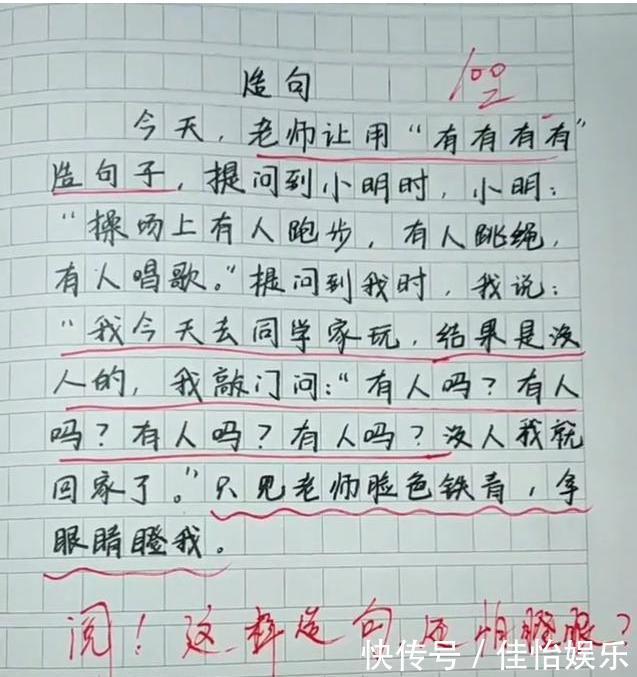 造句
100
今天，老师让用“有有有有”
造句子，提问到小明时，小明：
“操场上有人跑步，有人跳绳，
有人唱歌。”提问到我时，我说：
“我今天去同学家玩，结果是没
人的，我敲门问：“有人吗？有人
吗？有人吗？有人吗？没人我就
回家了。”只见老师脸色铁青，拿
眼睛瞪我。
阅！这样造句，还怕瞪眼？
快传号／佳怡娱乐